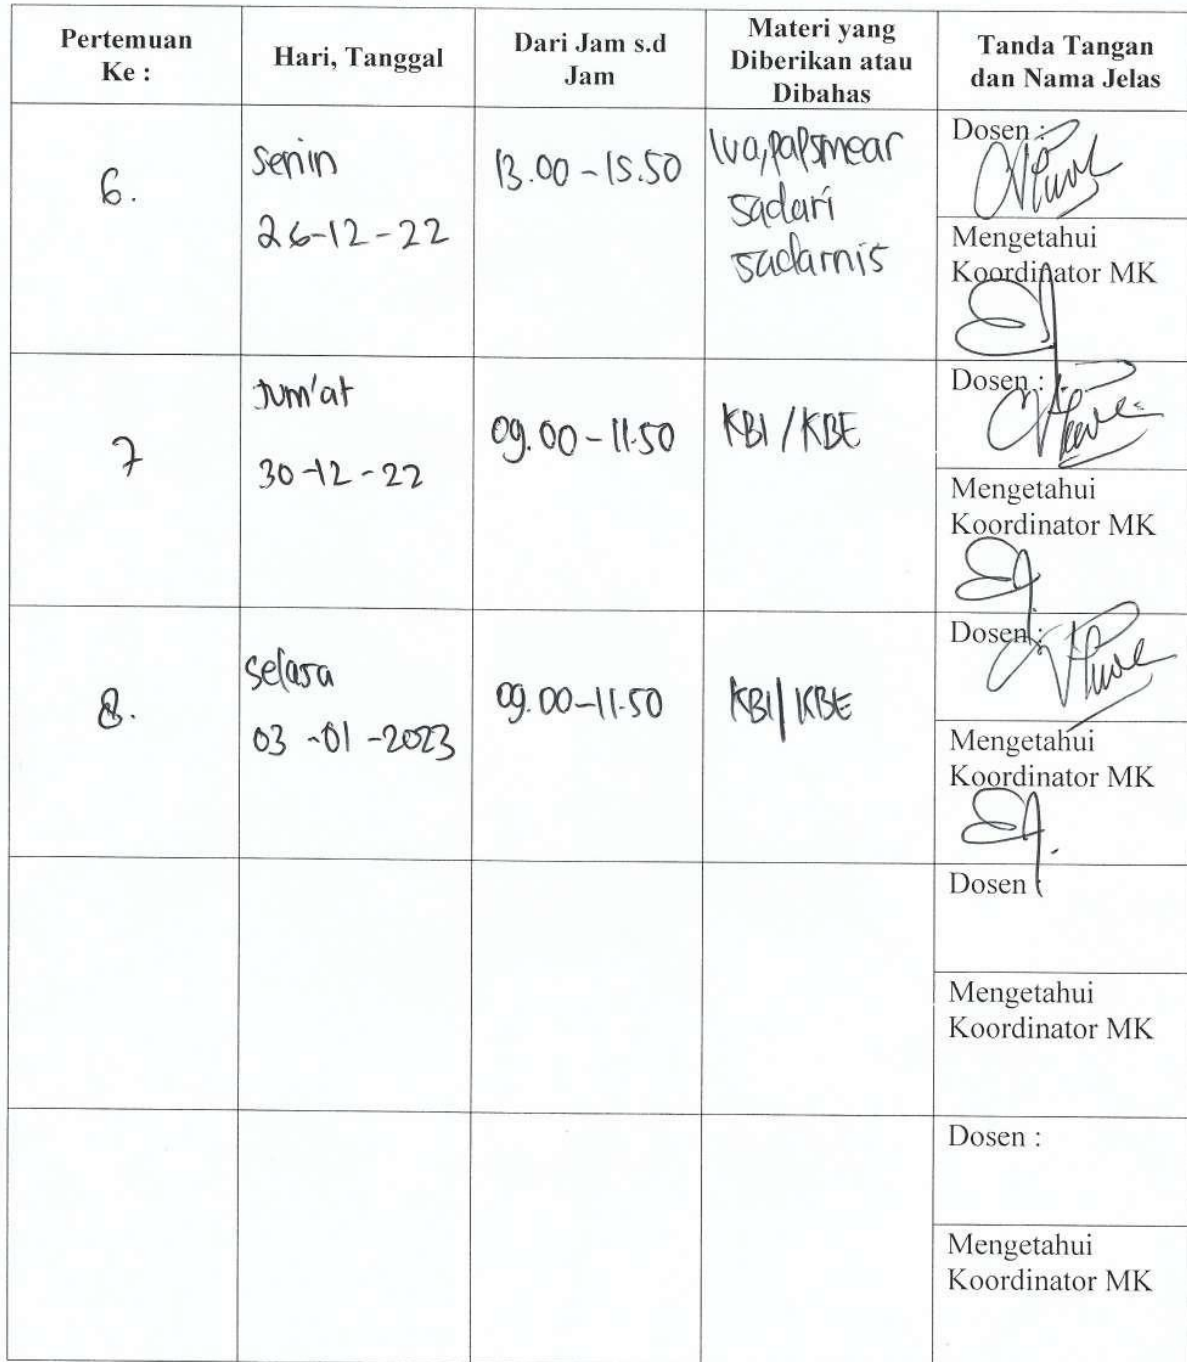 Pertemuan
Ke :
Hari, Tanggal
Dari Jam s.d
Jam
Materi yang
Diberikan atau
Dibahas
Tanda Tangan
dan Nama Jelas
6.
Senin
26-12-22
13.00 - 15.50
Iva, papsmear
sadari
sadarnis
Dosen :
Mengetahui
Koordinator MK
7
Jum'at
30-12-22
09.00 - 11.50
KBI / KBE
Dosen :
Mengetahui
Koordinator MK
8.
Selasa
03-01-2023
09.00-11.50
KBI / KBE
Dosen :
Mengetahui
Koordinator MK
Dosen :
Mengetahui
Koordinator MK
Dosen :
Mengetahui
Koordinator MK